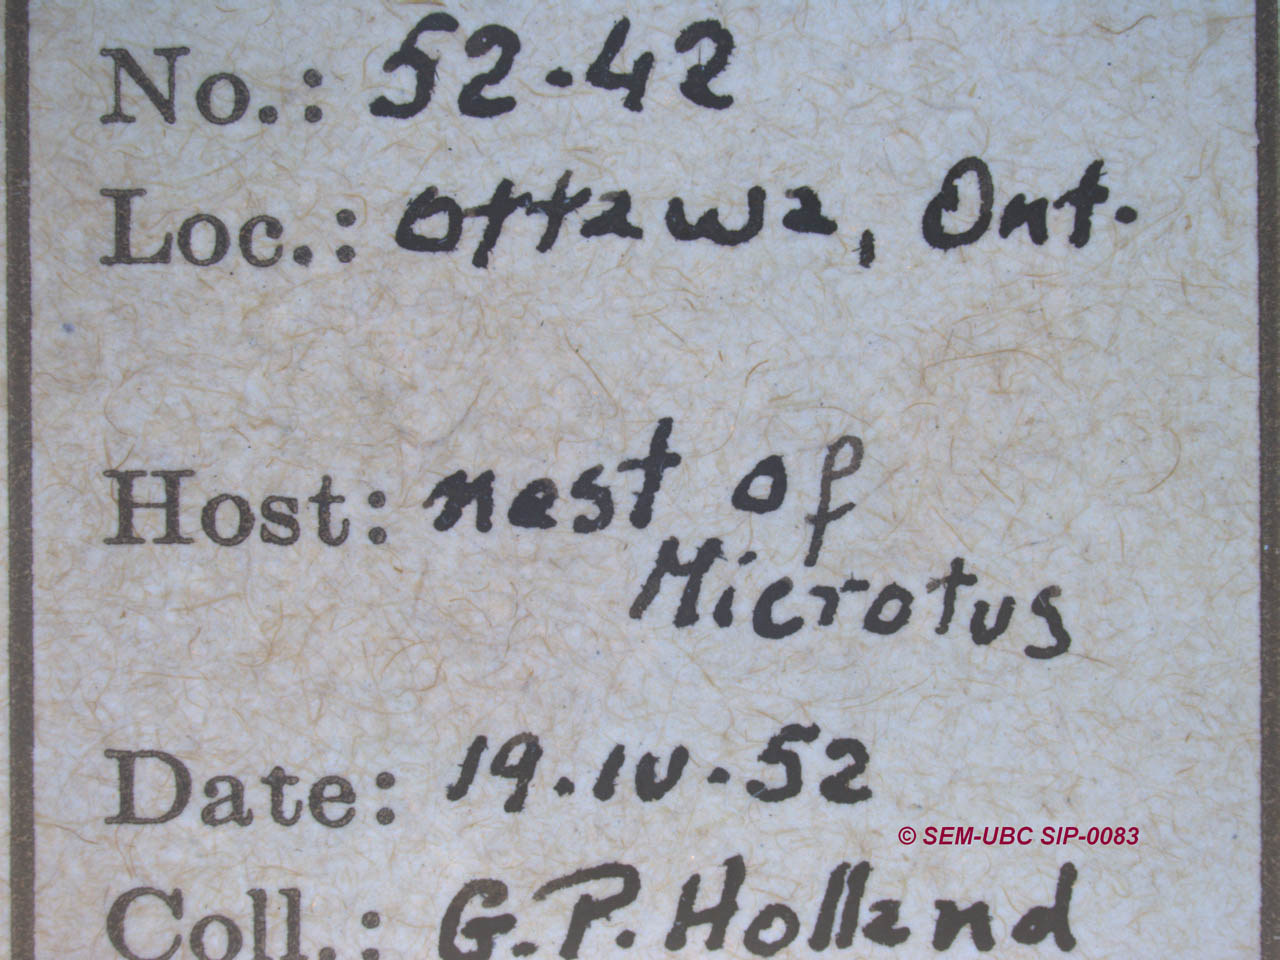 No.: 52.42
Loc.: Ottawa, Ont.
Host: nest of
Microtus
Date: 19.IV.52
© SEM-UBC SIP-0083
Coll.: G.P. Holland